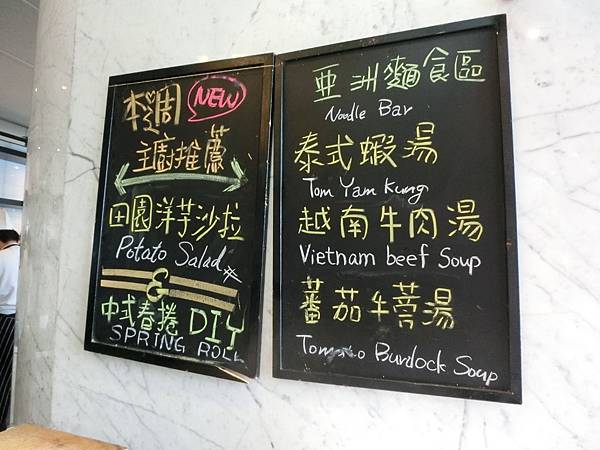 本週 NEW
主廚推薦
田園洋芋沙拉
Potato Salad
&
中式春捲 DIY
SPRING ROLL
亞洲麵食區
Noodle Bar
泰式蝦湯
Tom Yam Kung
越南牛肉湯
Vietnam beef Soup
蕃茄牛蒡湯
Tomato Burdock Soup